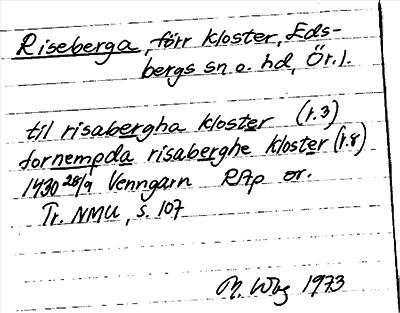 Riseberga, förr kloster, Eds-
bergs sn o. hd, Ör. l.
til risabergha kloster (r. 3)
fornempda risaberghe kloster (r. 8)
1430 28/9 Venngarn RAp or.
Tr. NMU, s. 107
1973